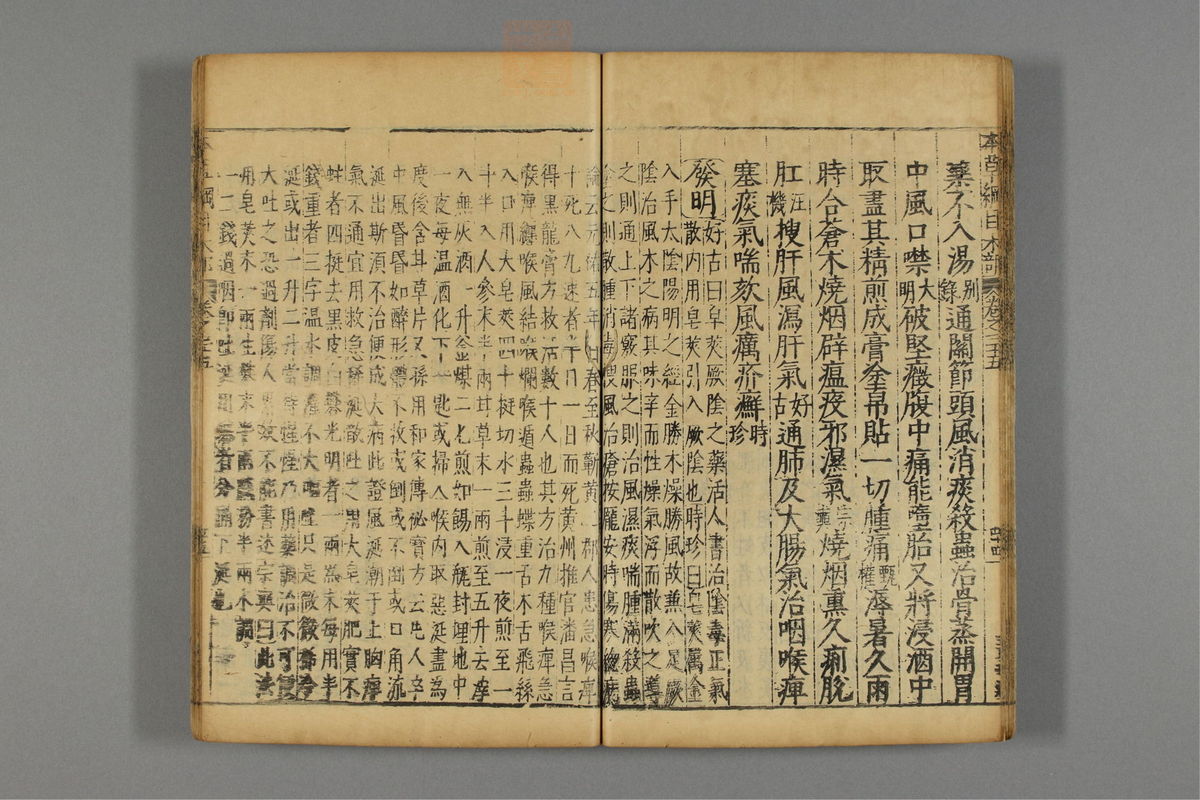 本草綱目木部 卷之三五
藥不入湯別錄通關節頭風消痰殺蟲治骨蒸開胃
中風口噤大明破堅癥腹中痛能墮胎又將浸酒中
取盡其精煎成膏塗帛貼一切腫痛甄權溽暑久雨
時合蒼朮燒烟辟瘟疫邪濕氣宗奭燒烟熏久痢脫
肛汪機搜肝風瀉肝氣好古通肺及大腸氣治咽喉痺
塞痰氣喘欬風癘疥癬時珍
發明好古曰皁莢厥陰之藥活人書治陰毒正氣
散內用皁莢引入厥陰也時珍曰皁莢屬金
入手太陰陽明之經金勝木燥勝風故兼入足厥
陰治風木之病其味辛而性燥氣浮而散吹之導
之則通上下諸竅服之則治風濕痰喘腫滿殺蟲
塗之則散腫消毒搜風治瘡按龐安時傷寒總病
論云元祐五年自春至秋蘄黃二郡人患急喉痺
十死八九速者半日一日而死黃州推官潘昌言
得黑龍膏方救活數十人也其方治九種喉痺急
喉痺纏喉風結喉爛喉遁蟲蟲蝶重舌木舌飛絲
入口用大皁莢四十挺切水三斗浸一夜煎至一
斗半入人參末半兩甘草末一兩煎至五升去滓
入無灰酒一升釜煤二匕煎如餳入瓶封埋地中
一夜每溫酒化下一匙或掃入喉內取惡涎盡為
度後含甘草片又孫用和家傳祕寶方云凡人卒
中風昏昏如醉形體不收或倒或不倒或口角流
涎出斯須不治便成大病此證風涎潮于上胸痺
氣不通宜用救急稀涎散吐之用大皁莢肥實不
蛀者四挺去黑皮白礬光明者一兩為末每用半
錢重者三字溫水調灌不大嘔吐只是微微稀冷
涎或出一升二升當待惺惺乃用藥調治不可便
大吐之恐過劑傷人累效不能書述宗奭曰此法
用皁莢末一兩生礬末半兩膩粉半兩水調
一二錢過咽即吐涎用礬者分膈下涎也